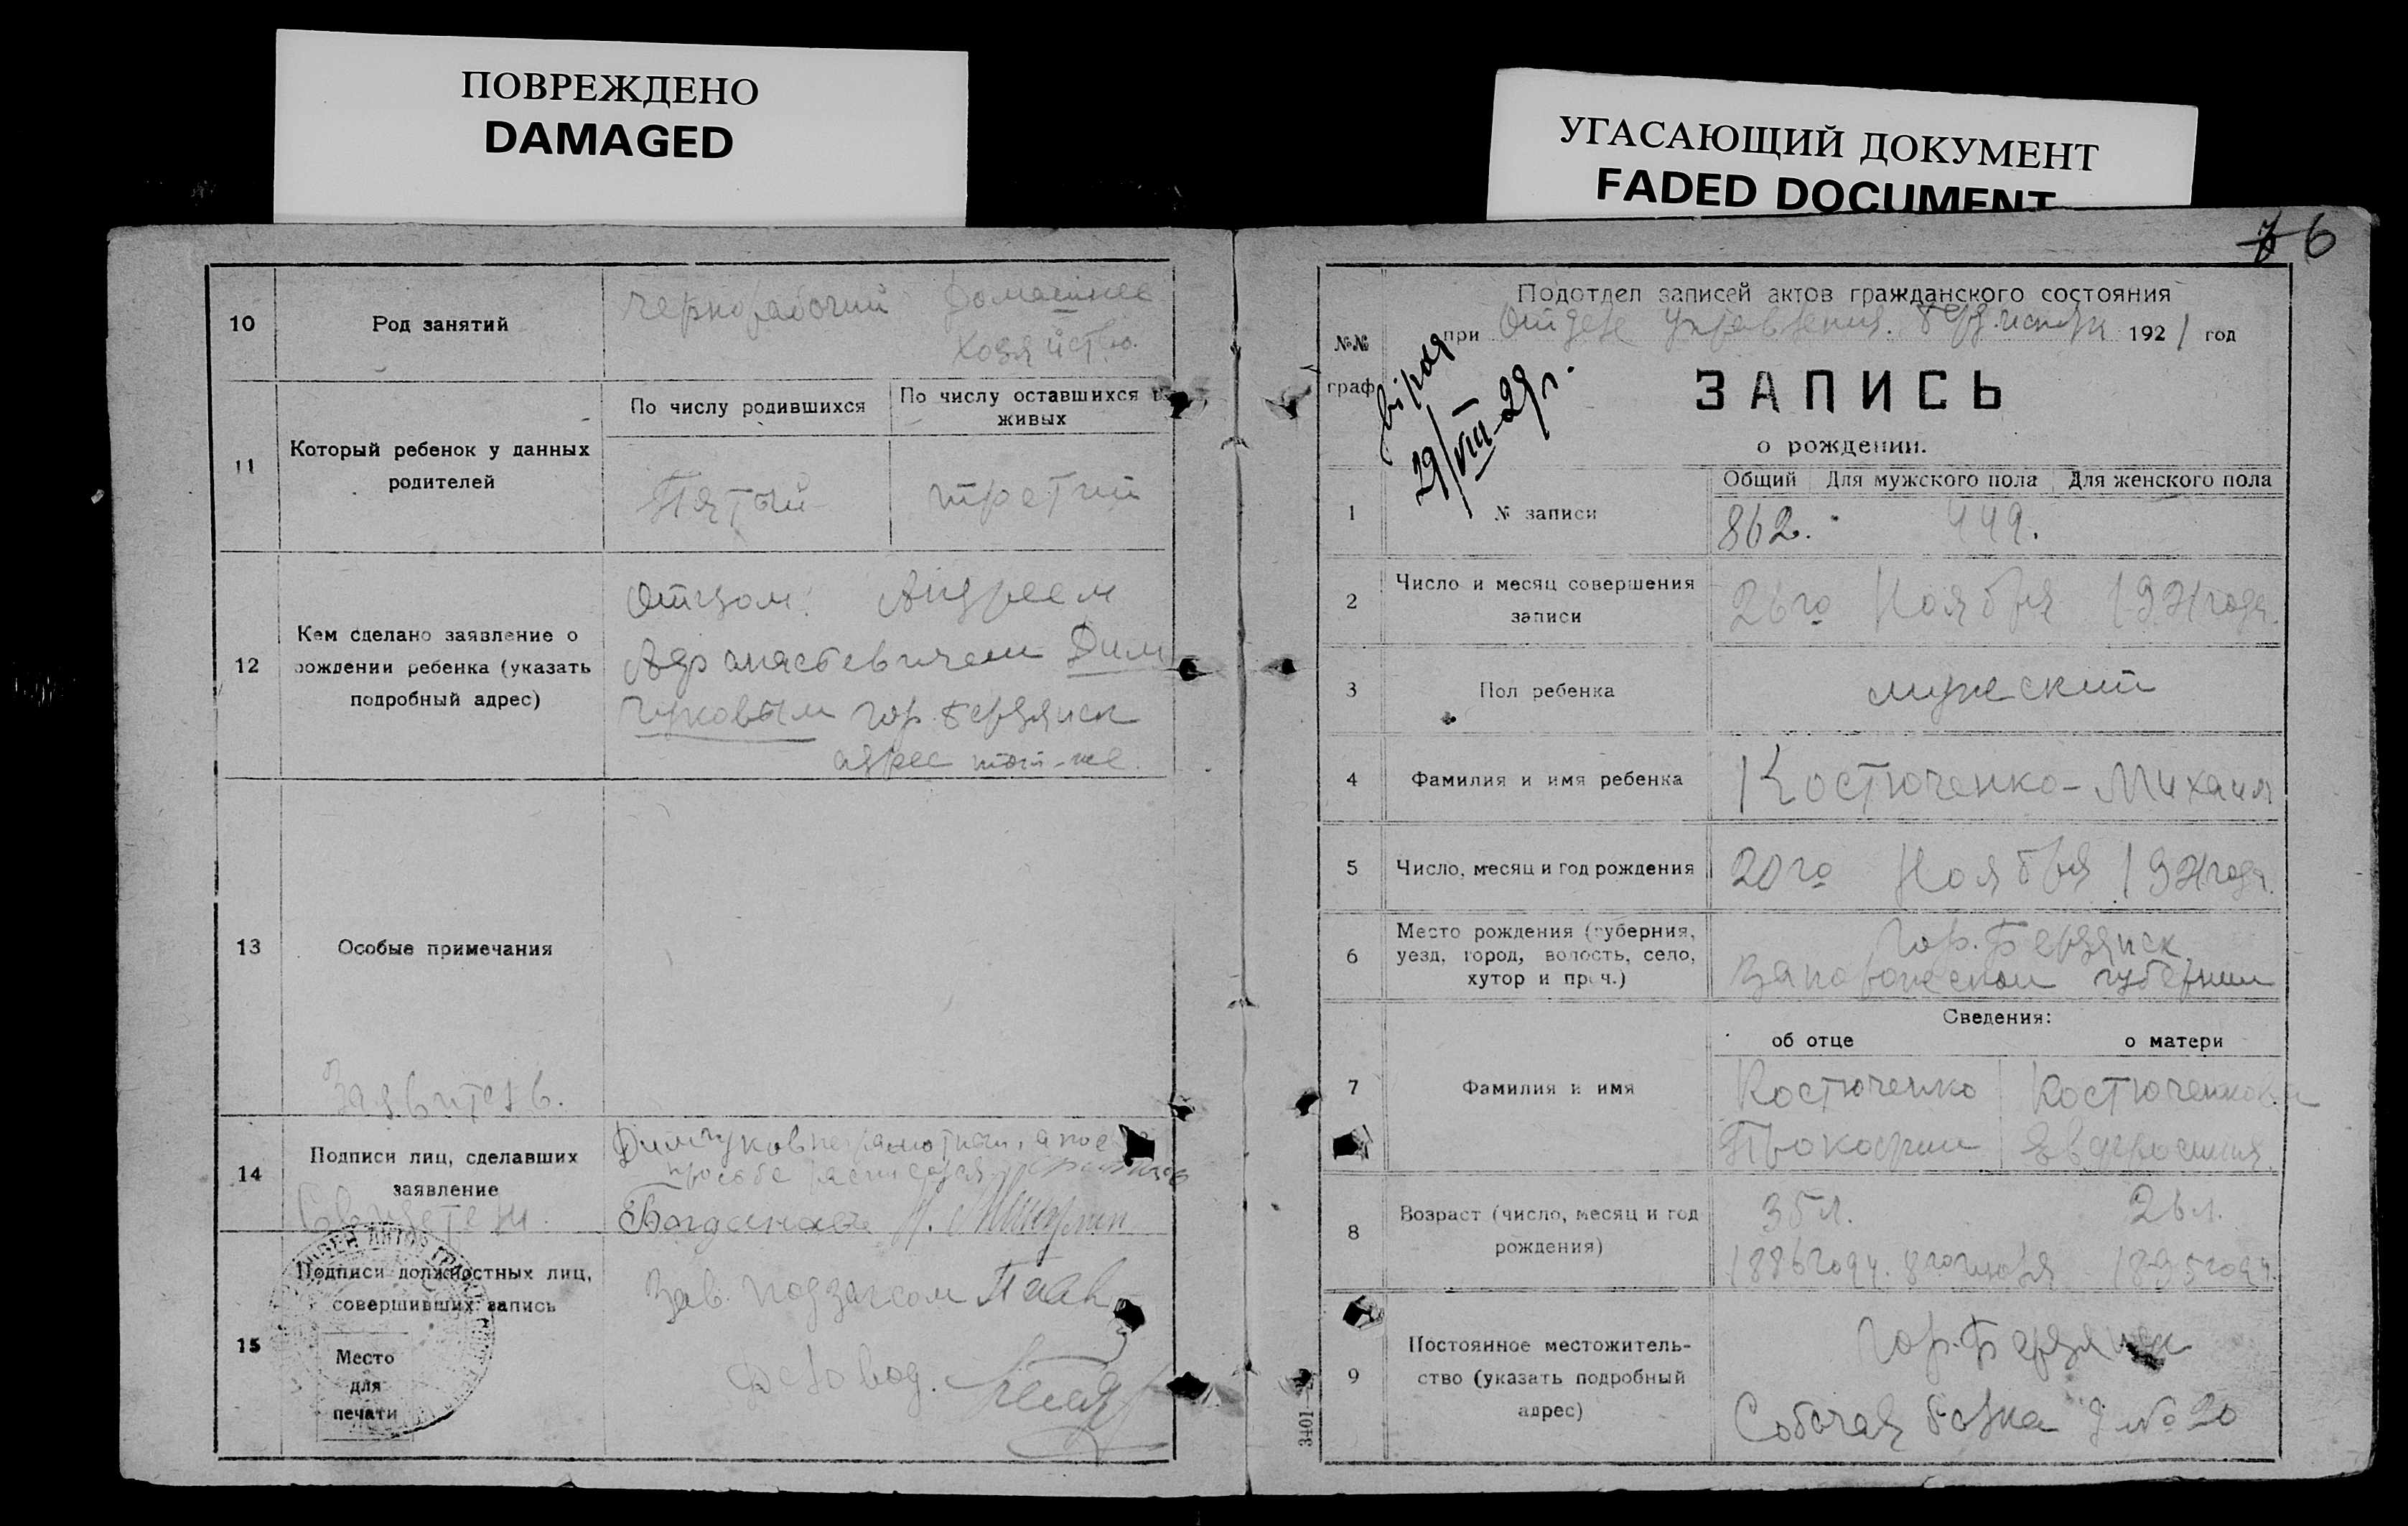 ПОВРЕЖДЕНО
DAMAGED
УГАСАЮЩИЙ ДОКУМЕНТ
FADED DOCUMENT
10 Род занятий
Чернорабочий
Домашнее
хозяйство.
11 Который ребенок у данных
родителей
По числу родившихся
По числу оставшихся в
живых
Пятый
третий
12 Кем сделано заявление о
рождении ребенка (указать
подробный адрес)
Отцом: Андреем
Дим
чуковым гор. Бердянск
адрес тот-же.
13 Особые примечания
Заявитель.
14 Подписи лиц, сделавших
заявление
Свидетели.
Димчуков неграмотный, а по е
просьбе расписался
15 Подписи должностных лиц,
совершивших запись
Место
для
печати
Зав. подзагсом
Деловод.
6
№№
граф
Подотдел записей актов гражданского состояния
при Отделе Управления. 1921 год
29/VIII-29 г.
ЗАПИСЬ
о рождении.
1 № записи
Общий Для мужского пола Для женского пола
862. 449.
2 Число и месяц совершения
записи
26го Ноября 1921 года.
3 Пол ребенка
мужеский
4 Фамилия и имя ребенка
Костюченко - Михаил
5 Число, месяц и год рождения
20го Ноября 1921 года.
6 Место рождения (губерния,
уезд, город, волость, село,
хутор и проч.)
Гор. Бердянск
Запорожской губернии
Сведения:
об отце о матери
7 Фамилия и имя
Костюченко Костюченкова
Прокофий Евфросиния
8 Возраст (число, месяц и год
рождения)
35 л. 26 л.
1886 года. 8го 1895 года.
9 Постоянное местожитель-
ство (указать подробный
адрес)
Гор. Бердянск
Собачая балка д № 20
3401